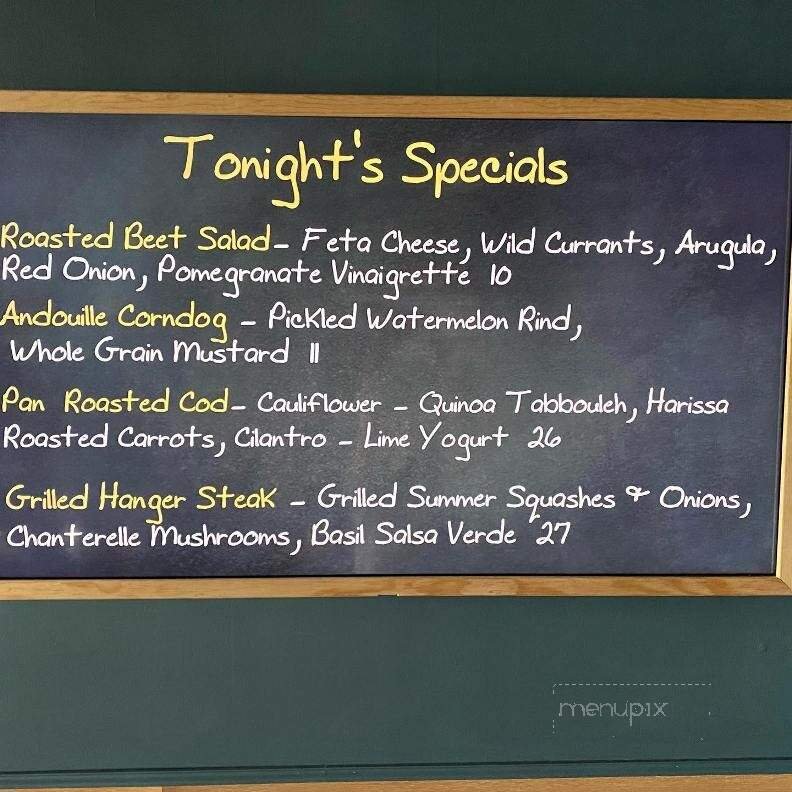 Tonight's Specials
Roasted Beet Salad - Feta Cheese, Wild Currants, Arugula,
Red Onion, Pomegranate Vinaigrette 10
Andouille Corndog - Pickled Watermelon Rind,
Whole Grain Mustard 11
Pan Roasted Cod - Cauliflower - Quinoa Tabbouleh, Harissa
Roasted Carrots, Cilantro - Lime Yogurt 26
Grilled Hanger Steak - Grilled Summer Squashes & Onions,
Chanterelle Mushrooms, Basil Salsa Verde 27
menupix